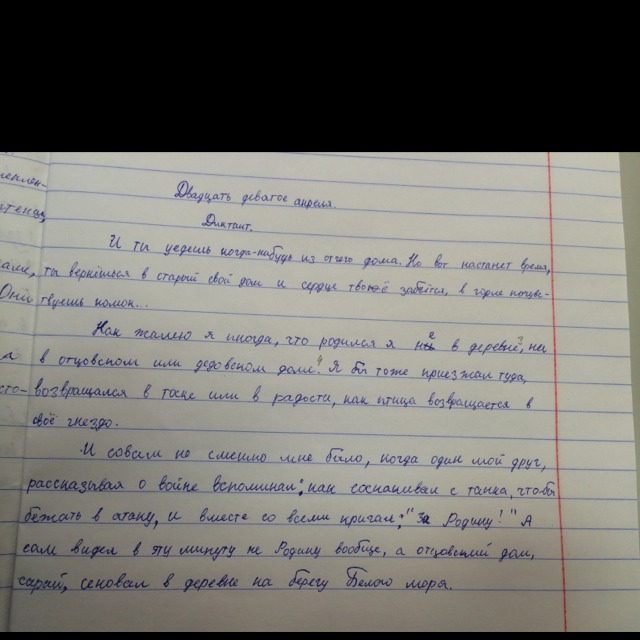 Двадцать девятое апреля.
Диктант.
И ты уедешь когда-нибудь из отчего дома. Но вот настанет время,
ты вернёшься в старый свой дом и сердце твоё забьётся, в горле почув-
ствуешь комок...
Как жалею я иногда, что родился я не в деревне, не
в отцовском или дедовском доме! Я бы тоже приезжал туда,
возвращался в тоске или в радости, как птица возвращается в
своё гнездо.
И совсем не смешно мне было, когда один мой друг,
рассказывая о войне вспоминал: как соскакивал с танка, чтобы
бежать в атаку, и вместе со всеми кричал: "За Родину!" А
сам видел в эту минуту не Родину вообще, а отцовский дом,
сарай, сеновал в деревне на берегу Белого моря.